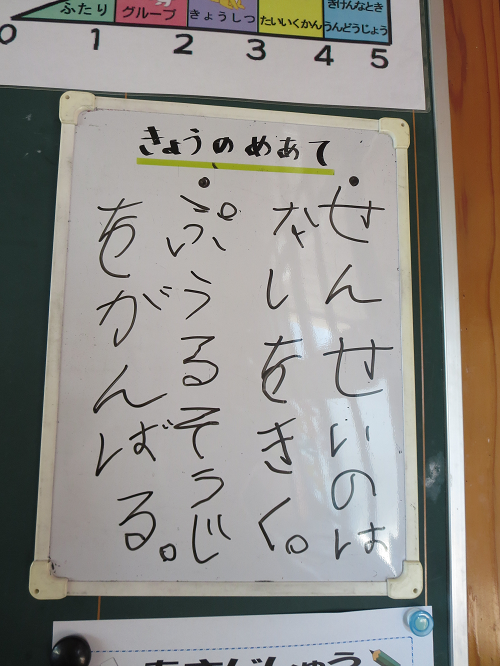 ふたり
グループ
きょうしつ
たいいくかん
きけんなとき
うんどうじょう
0 1 2 3 4 5
きょうのめあて
・せんせいのは
なしをきく。
・ぷうるそうじ
をがんばる。